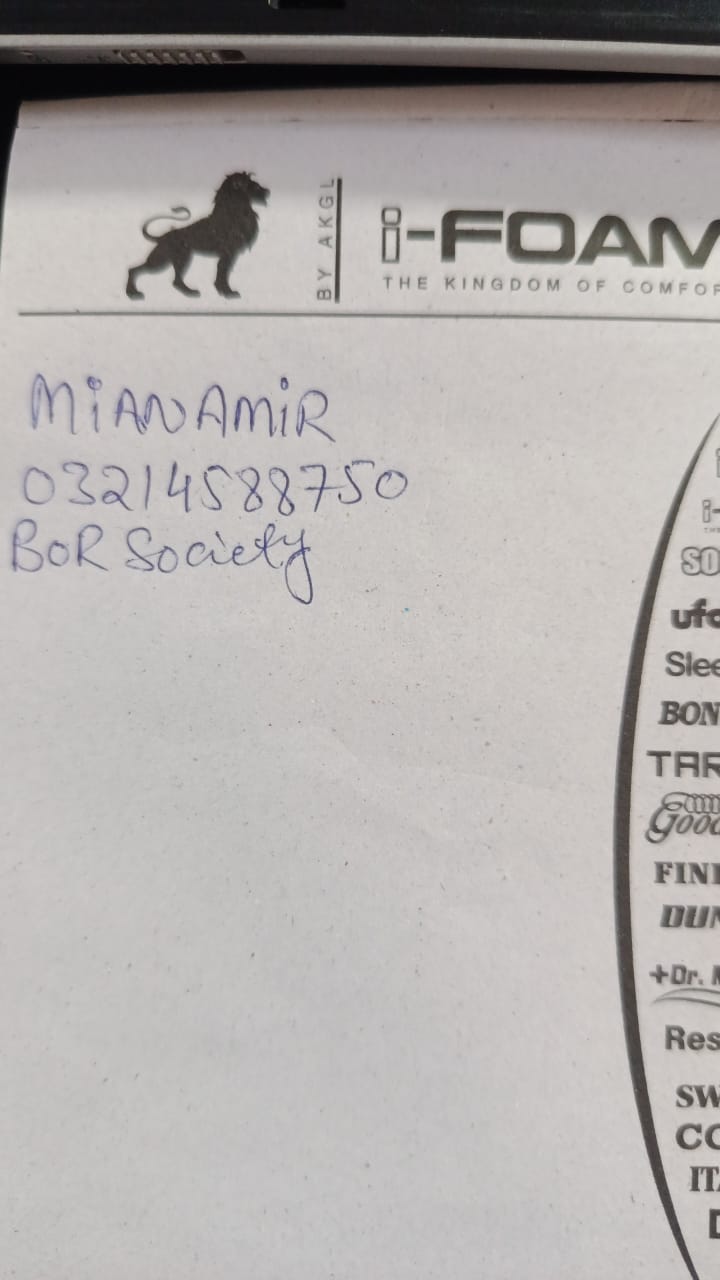 BY AKGL
i-FOAM
THE KINGDOM OF COMFOR
MIAN AMIR
03214588750
BOR Society
i-
SO
ufo
Slee
BON
TAR
Good
FINE
DUN
+Dr.
Res
SW
CO
ITA